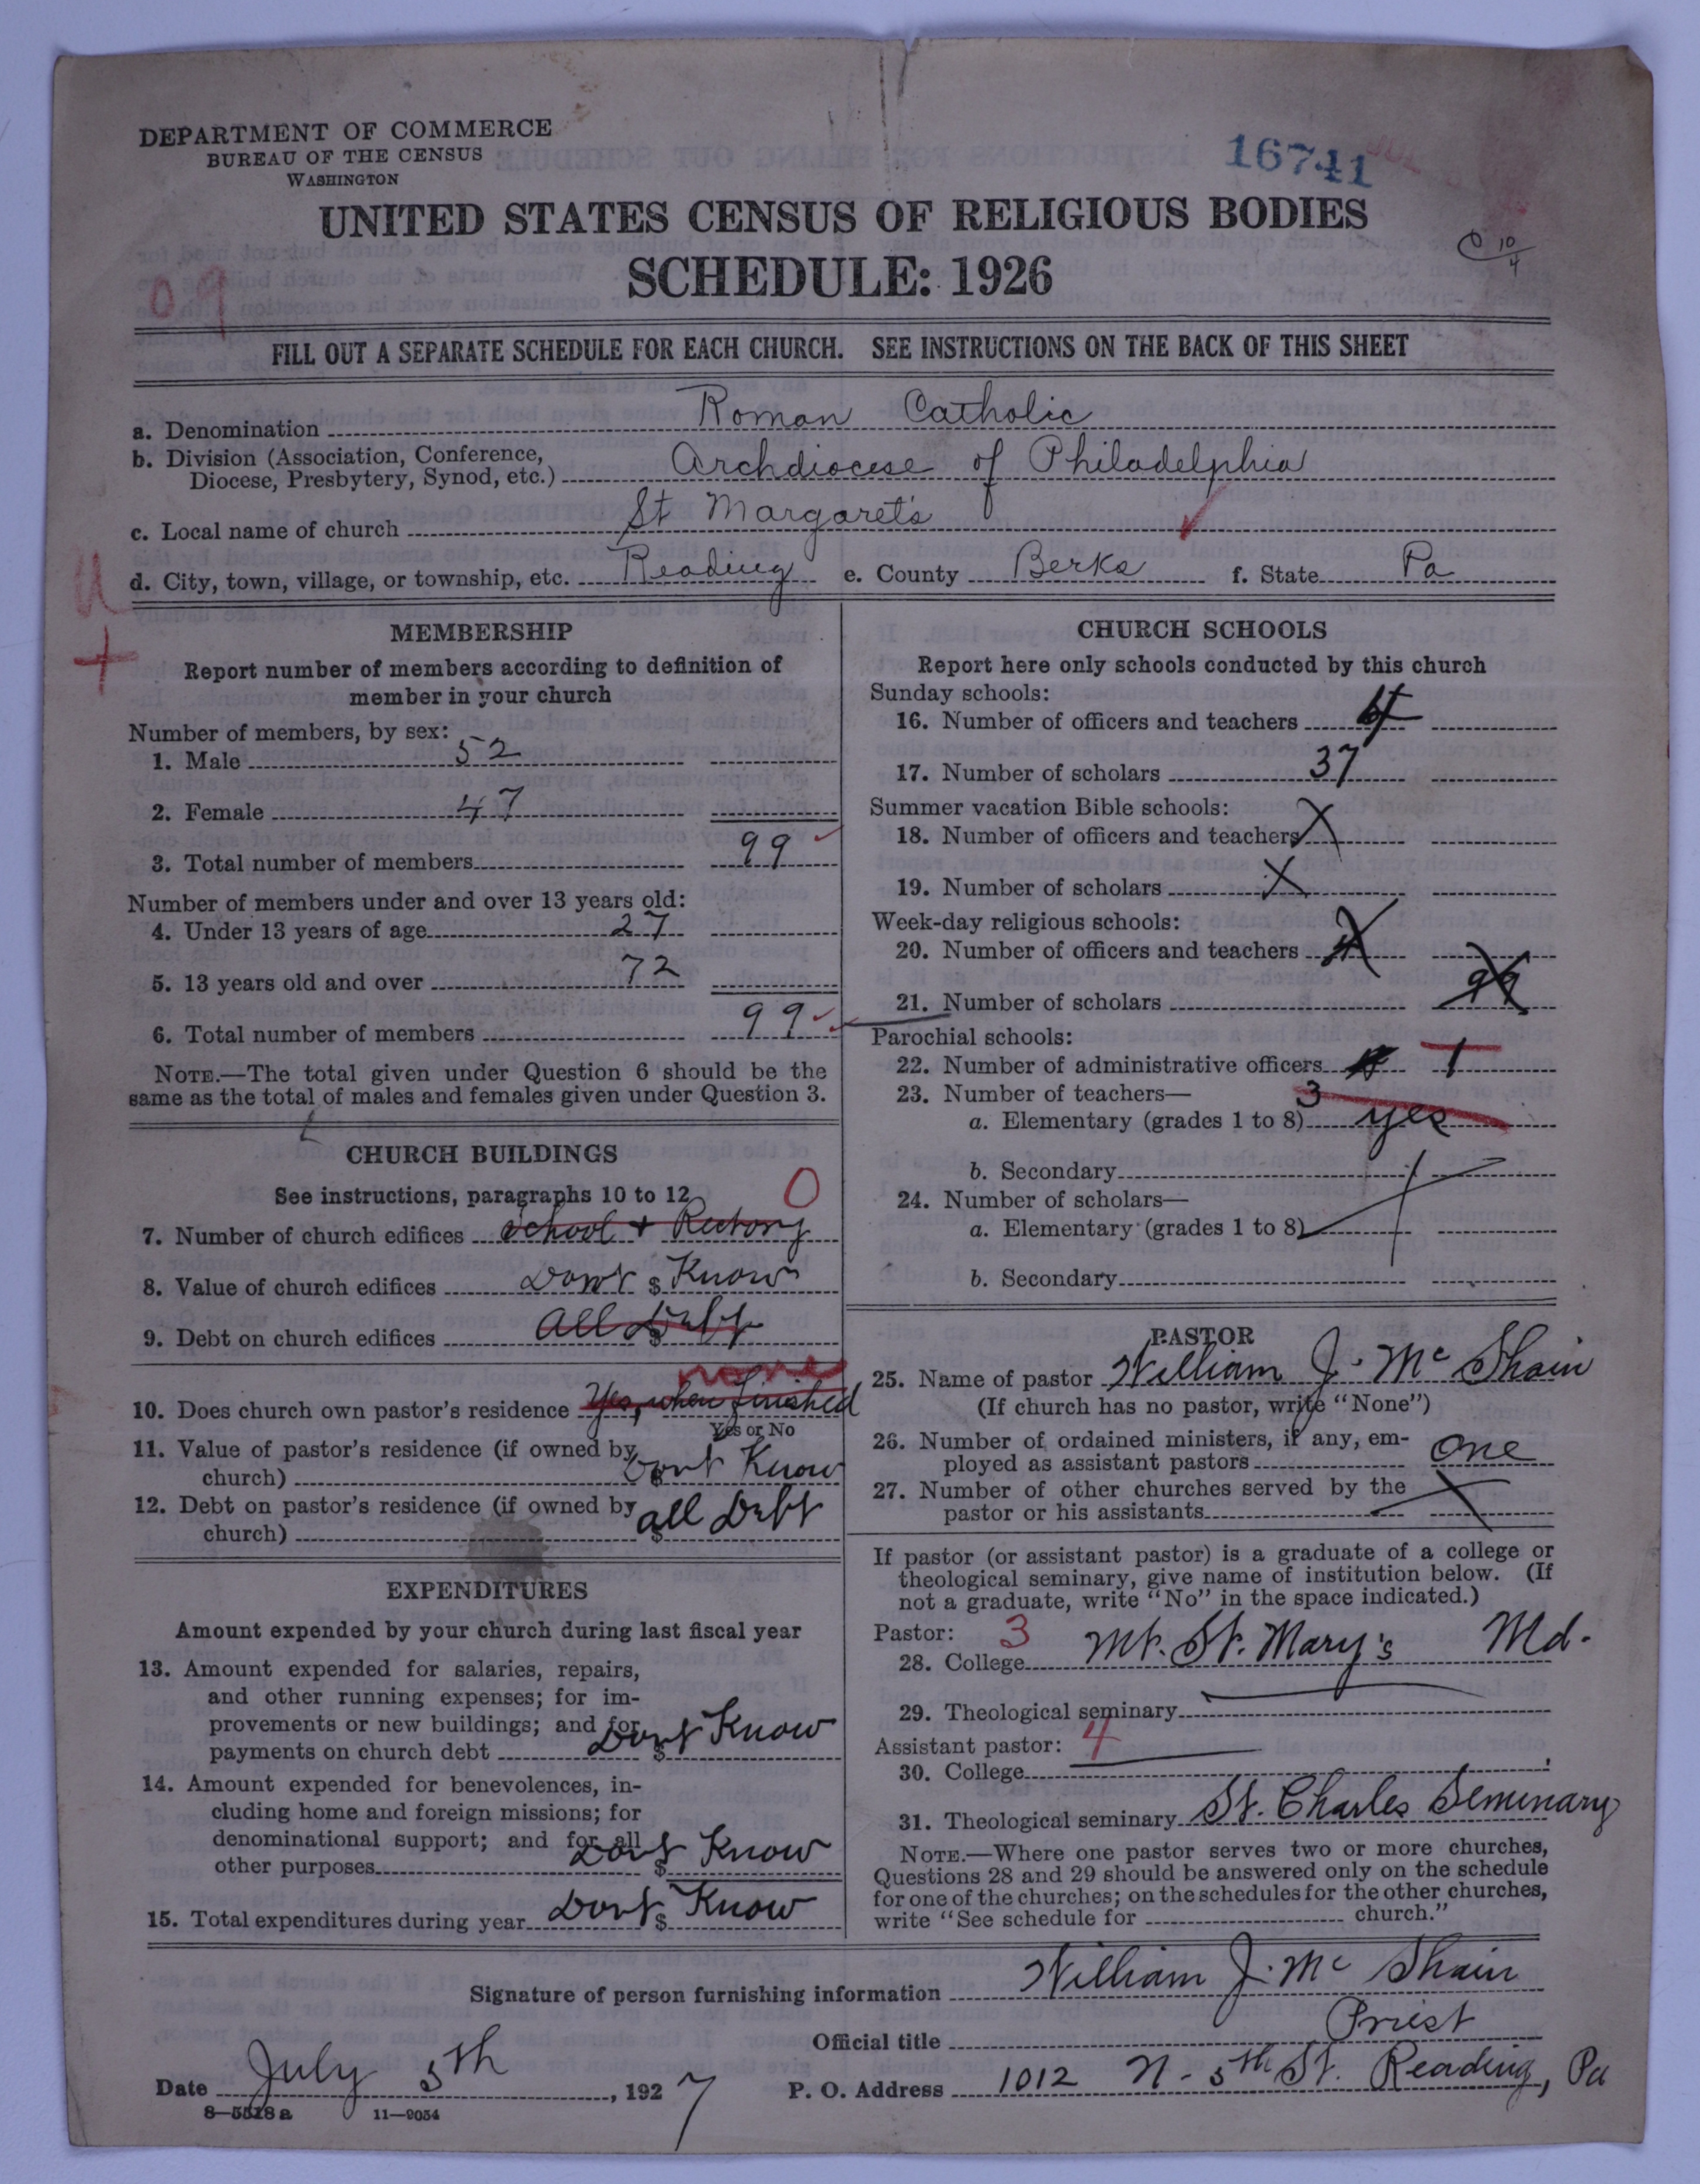 DEPARTMENT OF COMMERCE
BUREAU OF THE CENSUS
WASHINGTON
16741
UNITED STATES CENSUS OF RELIGIOUS BODIES
SCHEDULE: 1926
10/4
09
FILL OUT A SEPARATE SCHEDULE FOR EACH CHURCH. SEE INSTRUCTIONS ON THE BACK OF THIS SHEET
a. Denomination Roman Catholic
b. Division (Association, Conference,
Diocese, Presbytery, Synod, etc.) Archdiocese of Philadelphia
c. Local name of church St Margaret's
d. City, town, village, or township, etc. Reading e. County Berks f. State Pa
MEMBERSHIP
Report number of members according to definition of
member in your church
Number of members, by sex:
1. Male 52
2. Female 47
3. Total number of members 99
Number of members under and over 13 years old:
4. Under 13 years of age 27
5. 13 years old and over 72
6. Total number of members 99
NOTE.—The total given under Question 6 should be the
same as the total of males and females given under Question 3.
CHURCH BUILDINGS
See instructions, paragraphs 10 to 12
0
7. Number of church edifices School + Rectory
8. Value of church edifices Dont $ Know
9. Debt on church edifices All $ Debt
none
10. Does church own pastor's residence Yes, when finished
Yes or No
11. Value of pastor's residence (if owned by
church) $ Dont Know
12. Debt on pastor's residence (if owned by
church) $ all Debt
EXPENDITURES
Amount expended by your church during last fiscal year
13. Amount expended for salaries, repairs,
and other running expenses; for im-
provements or new buildings; and for
payments on church debt Dont $ Know
14. Amount expended for benevolences, in-
cluding home and foreign missions; for
denominational support; and for all
other purposes Dont $ Know
15. Total expenditures during year Dont $ Know
CHURCH SCHOOLS
Report here only schools conducted by this church
Sunday schools:
16. Number of officers and teachers 4
17. Number of scholars 37
Summer vacation Bible schools:
18. Number of officers and teachers X
19. Number of scholars X
Week-day religious schools:
20. Number of officers and teachers
21. Number of scholars 99
Parochial schools:
22. Number of administrative officers 1
23. Number of teachers—
3
a. Elementary (grades 1 to 8) yes
b. Secondary
24. Number of scholars—
a. Elementary (grades 1 to 8)
b. Secondary
PASTOR
25. Name of pastor William J. Mc Shain
(If church has no pastor, write "None")
26. Number of ordained ministers, if any, em-
ployed as assistant pastors one
27. Number of other churches served by the
pastor or his assistants
If pastor (or assistant pastor) is a graduate of a college or
theological seminary, give name of institution below. (If
not a graduate, write "No" in the space indicated.)
Pastor: 3
28. College Mt. St. Mary's Md.
29. Theological seminary
Assistant pastor: 4
30. College
31. Theological seminary St. Charles Seminary
NOTE.—Where one pastor serves two or more churches,
Questions 28 and 29 should be answered only on the schedule
for one of the churches; on the schedules for the other churches,
write "See schedule for church."
Signature of person furnishing information William J. Mc Shain
Official title Priest
Date July 5th, 1927 P. O. Address 1012 N. 5th St. Reading, Pa
8—5518a 11—9054